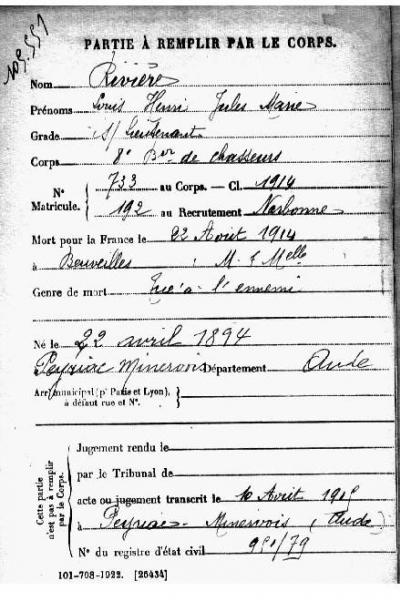 109.551
PARTIE À REMPLIR PAR LE CORPS.
Nom Rivière
Prénoms Louis Henri Jules Marie
Grade S/ Lieutenant
Corps 8e Bon de chasseurs
N° Matricule. { 733 au Corps. — Cl. 1914
192 au Recrutement Narbonne
Mort pour la France le 22 Août 1914
à Beuveilles M. & Melle
Genre de mort Tué à l'ennemi
Né le 22 avril 1894
Peyriac Minervois Département Aude
Arrt municipal (pr Paris et Lyon), à défaut rue et N°. }
Cette partie n'est pas à remplir par le Corps. {
Jugement rendu le
par le Tribunal de
acte ou jugement transcrit le Août
à Peyriac-Minervois (Aude)
N° du registre d'état civil /79
101-708-1922. [26434]